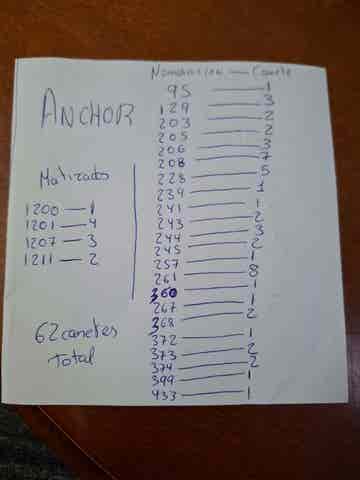 ANCHOR
Matizados
1200 — 1
1201 — 4
1207 — 3
1211 — 2
62 canetes
Total
Numeracion — Canete
95 — 1
129 — 3
203 — 2
205 — 2
206 — 3
208 — 7
228 — 5
239 — 1
241 — 1
243 — 2
244 — 3
245 — 2
257 — 1
261 — 8
360 — 1
267 — 1
368 — 2
372 — 1
373 — 2
374 — 2
399 — 1
433 — 1